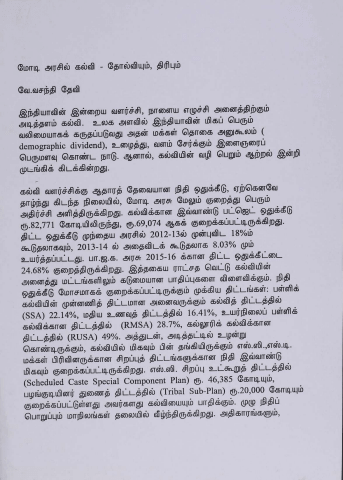 மோடி அரசில் கல்வி - தோல்வியும், திரிபும்
வே.வசந்தி தேவி
இந்தியாவின் இன்றைய வளர்ச்சி, நாளைய எழுச்சி அனைத்திற்கும்
அடித்தளம் கல்வி. உலக அளவில் இந்தியாவின் மிகப் பெரும்
வலிமையாகக் கருதப்படுவது அதன் மக்கள் தொகை அனுகூலம் (
demographic dividend), உழைத்து, வளம் சேர்க்கும் இளைஞரைப்
பெருமளவு கொண்ட நாடு. ஆனால், கல்வியின் வழி பெறும் ஆற்றல் இன்றி
முடங்கிக் கிடக்கின்றது.
கல்வி வளர்ச்சிக்கு ஆதாரத் தேவையான நிதி ஒதுக்கீடு, ஏற்கெனவே
தாழ்ந்து கிடந்த நிலையில், மோடி அரசு மேலும் குறைத்து பெரும்
அதிர்ச்சி அளித்திருக்கிறது. கல்விக்கான இவ்வாண்டு பட்ஜெட் ஒதுக்கீடு
ரூ.82,771 கோடியிலிருந்து, ரூ.69,074 ஆகக் குறைக்கப்பட்டிருக்கிறது.
திட்ட ஒதுக்கீடு முந்தைய அரசால் 2012-13ல் முன்புவிட 18%ம்
கூடுதலாகவும், 2013-14 ல் அதைவிடக் கூடுதலாக 8.03% மும்
உயர்த்தப்பட்டது. பா.ஜ.க. அரசு 2015-16 க்கான திட்ட ஒதுக்கீட்டை
24.68% குறைத்திருக்கிறது. இத்தகைய ராட்சத வெட்டு கல்வியின்
அனைத்து மட்டங்களிலும் கடுமையான பாதிப்புகளை விளைவிக்கும். நிதி
ஒதுக்கீடு மோசமாகக் குறைக்கப்பட்டிருக்கும் முக்கிய திட்டங்கள்: பள்ளிக்
கல்வியின் முன்னணித் திட்டமான அனைவருக்கும் கல்வித் திட்டத்தில்
(SSA) 22.14%, மதிய உணவுத் திட்டத்தில் 16.41%, உயர்நிலைப் பள்ளிக்
கல்விக்கான திட்டத்தில் (RMSA) 28.7%, கல்லூரிக் கல்விக்கான
திட்டத்தில் (RUSA) 49%. அத்துடன், அடித்தட்டில் உழன்று
கொண்டிருக்கும், கல்வியில் மிகவும் பின் தங்கியிருக்கும் எஸ்.ஸி.,எஸ்.டி.
மக்கள் பிரிவினருக்கான சிறப்புத் திட்டங்களுக்கான நிதி இவ்வாண்டு
மிகவும் குறைக்கப்பட்டிருக்கிறது. எஸ்.ஸி. சிறப்பு உட்கூறுத் திட்டத்தில்
(Scheduled Caste Special Component Plan) ரூ. 46,385 கோடியும்,
பழங்குடியினர் துணைத் திட்டத்தில் (Tribal Sub-Plan) ரூ.20,000 கோடியும்
குறைக்கப்பட்டுள்ளது அவர்களது கல்வியையும் பாதிக்கும். முழு நிதிப்
பொறுப்பும் மாநிலங்கள் தலையில் வீழ்ந்திருக்கிறது. அதிகாரங்களும்,